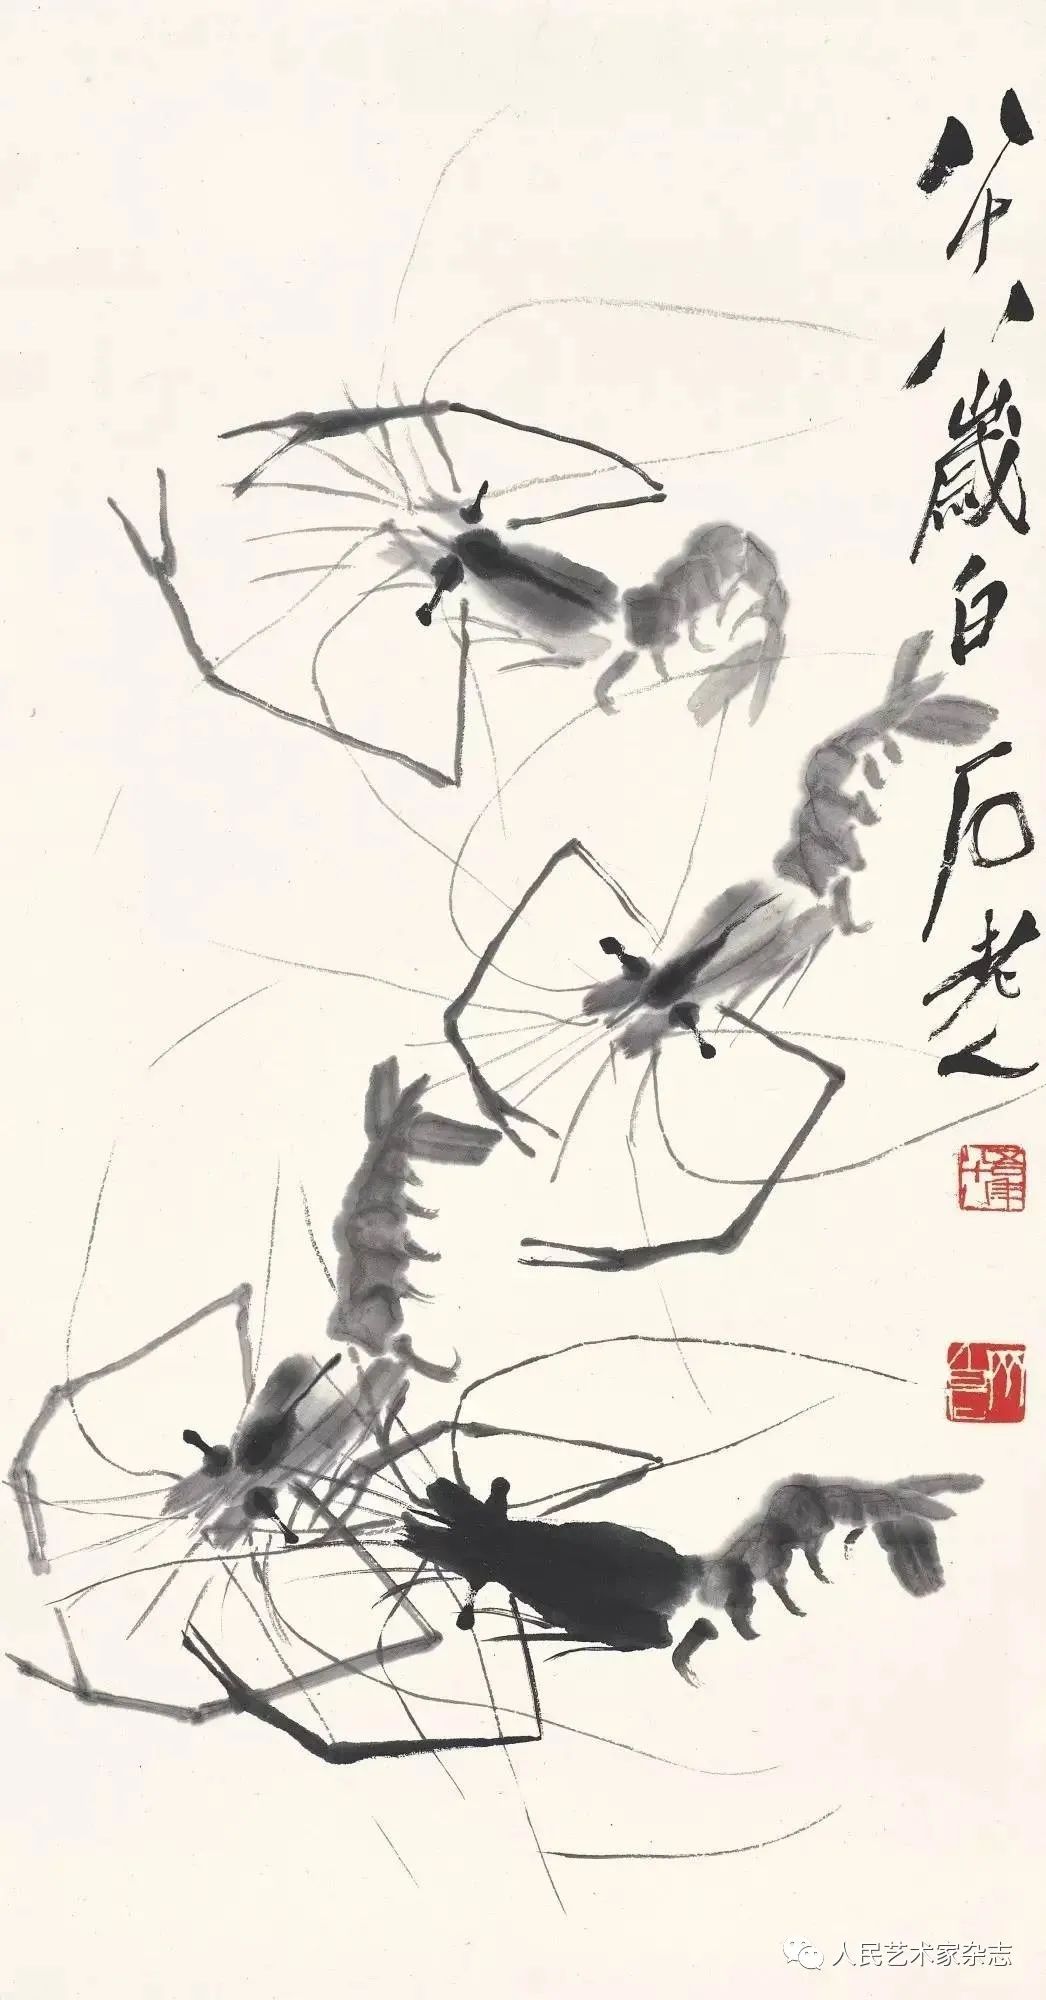 八十八歲白石老人
人民艺术家杂志